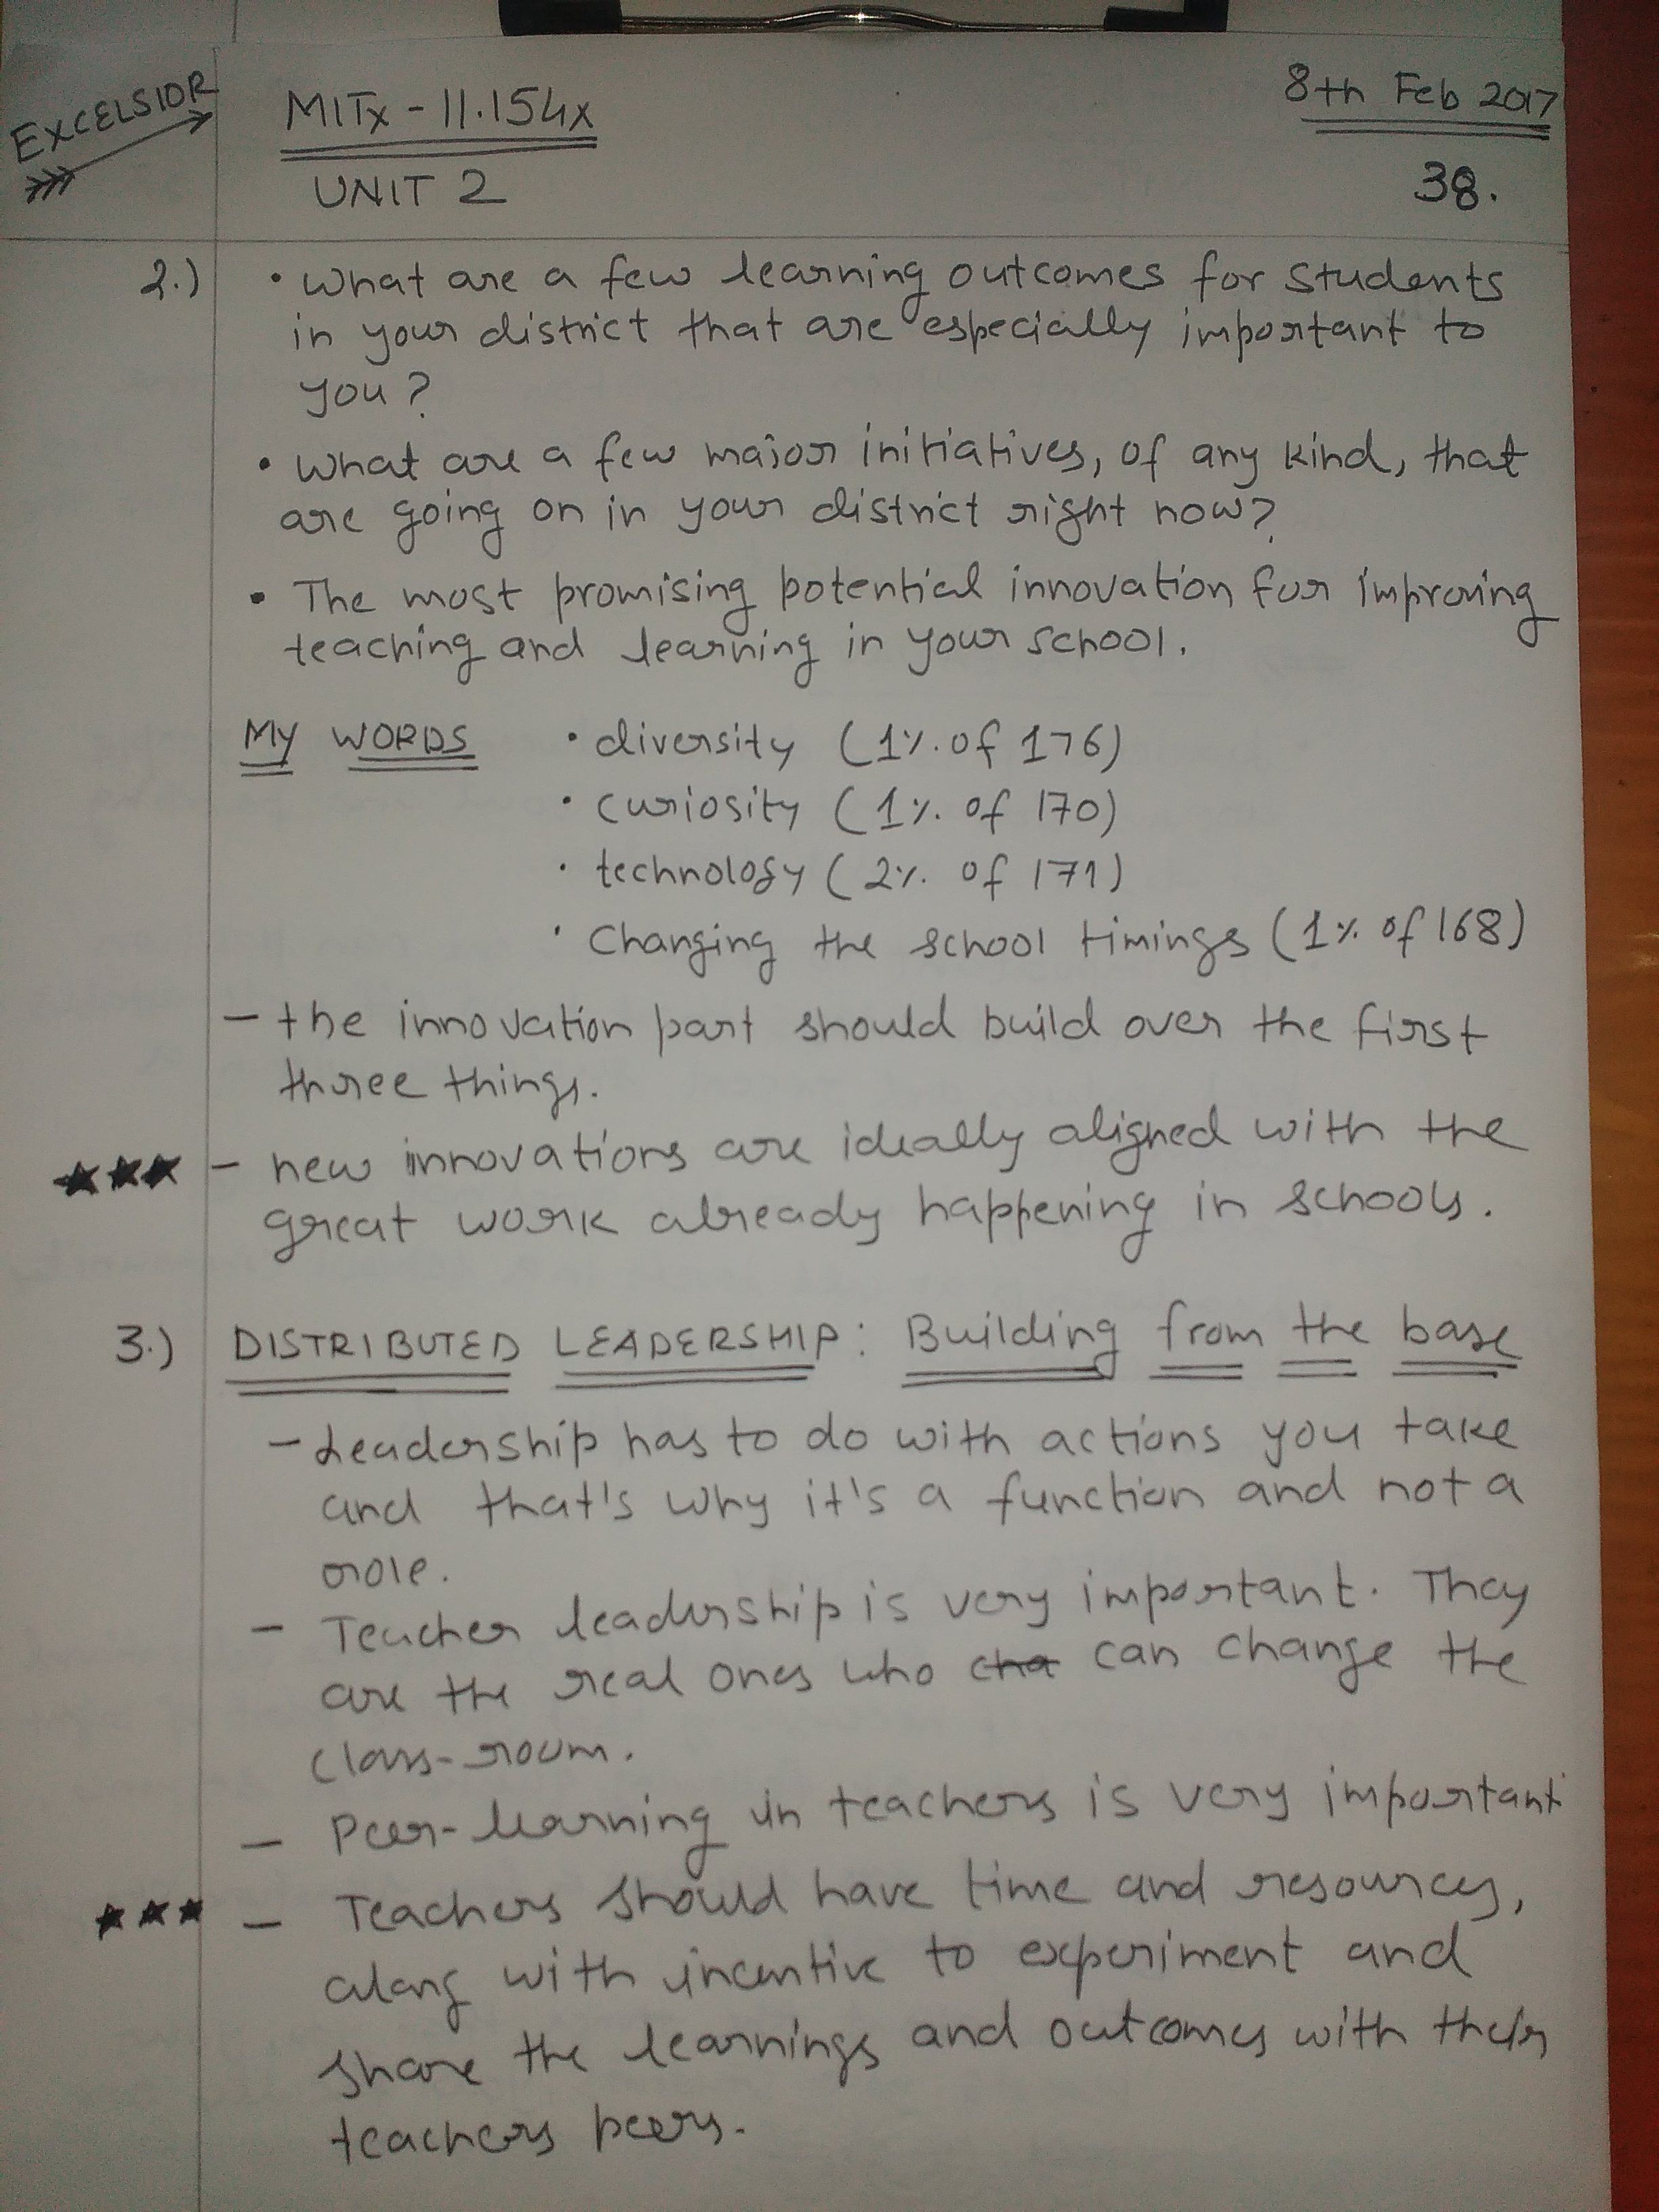 EXCELSIOR
MITx - 11.154x
8th Feb 2017
UNIT 2
38.
2.) • What are a few learning outcomes for students
in your district that are especially important to
you?
• What are a few major initiatives, of any kind, that
are going on in your district right now?
• The most promising potential innovation for improving
teaching and learning in your school.
MY WORDS • diversity (1% of 176)
• curiosity (1% of 170)
• technology (2% of 171)
• Changing the school timings (1% of 168)
- the innovation part should build over the first
three things.
★★★ - new innovations are ideally aligned with the
great work already happening in schools.
3.) DISTRIBUTED LEADERSHIP: Building from the base
- Leadership has to do with actions you take
and that's why it's a function and not a
role.
- Teacher leadership is very important. They
are the real ones who cha can change the
class-room.
- Peer-learning in teachers is very important
★★★ - Teachers should have time and resources,
along with incentive to experiment and
share the learnings and outcomes with their
teachers peers.